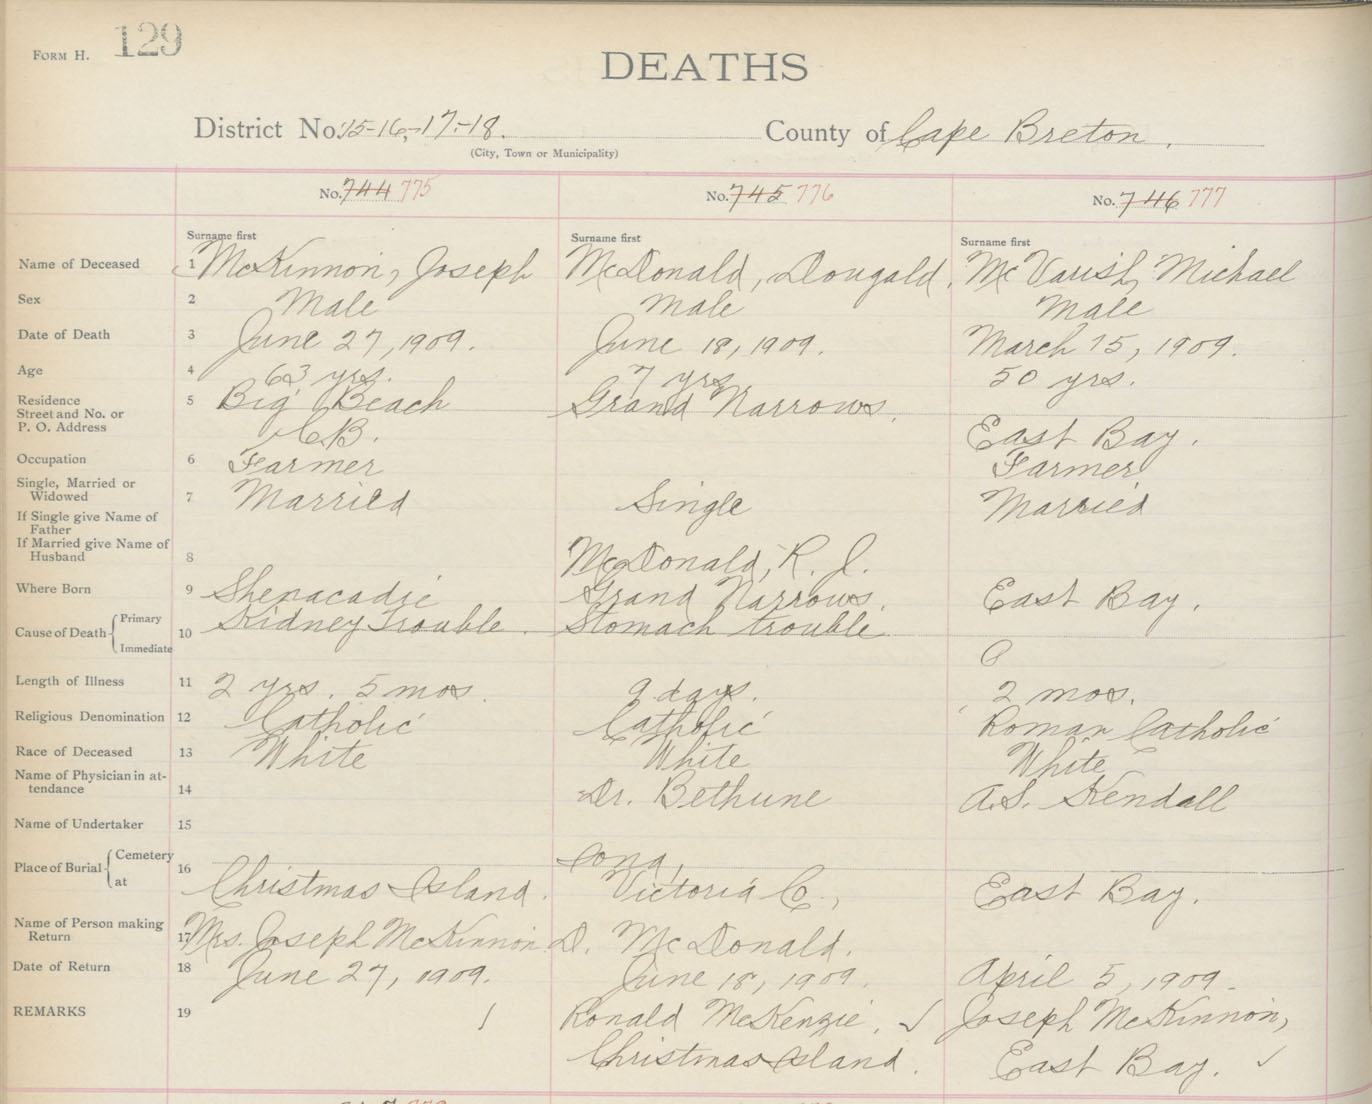 FORM H. 129
DEATHS
District No. 15-16,-17.-18. County of Cape Breton.
(City, Town or Municipality)
No. 744 775 No. 745 776 No. 746 777
Surname first Surname first Surname first
Name of Deceased 1 McKinnon, Joseph McDonald, Dougald. McVarish, Michael
Sex 2 Male Male Male
Date of Death 3 June 27, 1909. June 18, 1909. March 15, 1909.
Age 4 63 yrs. 7 yrs. 50 yrs.
Residence 5 Big Beach Grand Narrows.
Street and No. or
P. O. Address C.B. East Bay.
Occupation 6 Farmer Farmer
Single, Married or
Widowed 7 Married Single Married
If Single give Name of
Father
If Married give Name of
Husband 8 McDonald, R. J.
Where Born 9 Shenacadie Grand Narrows. East Bay.
Cause of Death Primary 10 Kidney Trouble. Stomach trouble
Immediate
Length of Illness 11 2 yrs. 5 mos. 9 days. 2 mos.
Religious Denomination 12 Catholic Catholic Roman Catholic
Race of Deceased 13 White White White
Name of Physician in at-
tendance 14 Dr. Bethune A.S. Kendall
Name of Undertaker 15
Place of Burial Cemetery 16 Iona,
at Christmas Island. Victoria Co., East Bay.
Name of Person making
Return 17 Mrs. Joseph McKinnon D. McDonald.
Date of Return 18 June 27, 1909. June 18, 1909. April 5, 1909.
REMARKS 19 Ronald McKenzie. Joseph McKinnon,
Christmas Island. East Bay.